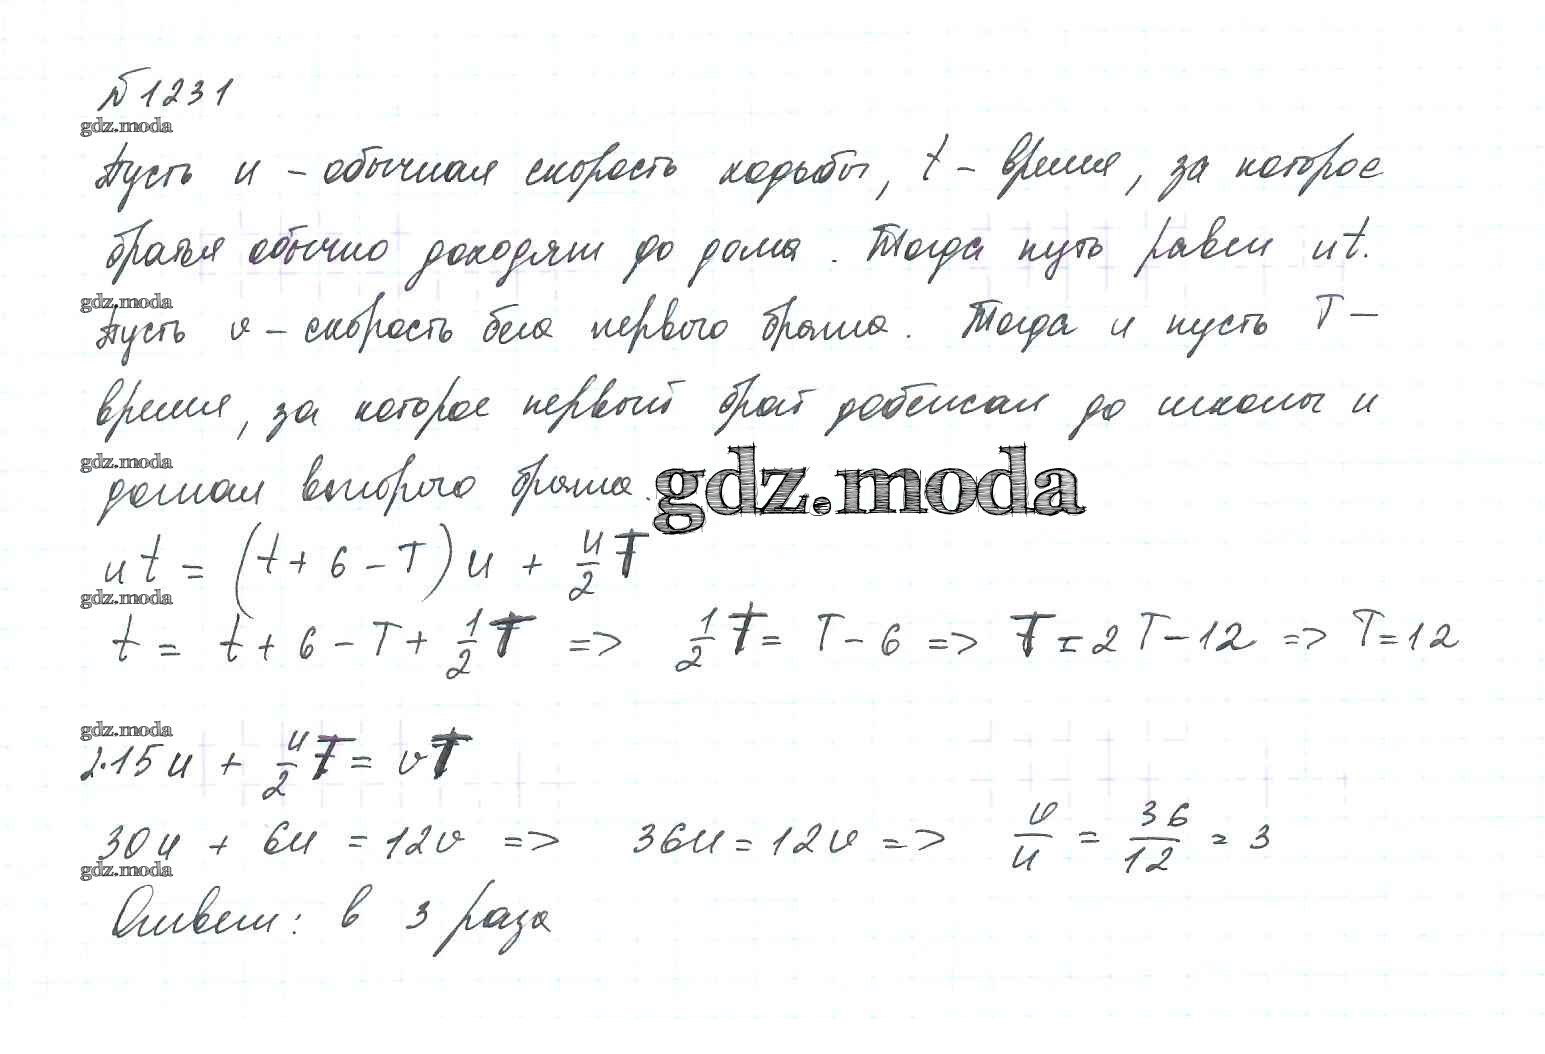 №1231
gdz.moda
Пусть u – обычная скорость ходьбы, t – время, за которое
братья обычно доходят до дома. Тогда путь равен ut.
gdz.moda
Пусть v – скорость бега первого брата. Тогда и пусть T –
время, за которое первый брат добежал до школы и
gdz.moda
догнал второго брата.
gdz.moda
ut = (t + 6 – T)u + u/2 T
gdz.moda
t = t + 6 – T + 1/2 T => 1/2 T = T – 6 => T = 2T – 12 => T = 12
gdz.moda
2·15u + u/2 T = vT
30u + 6u = 12v => 36u = 12v => v/u = 36/12 = 3
gdz.moda
Ответ: в 3 раза